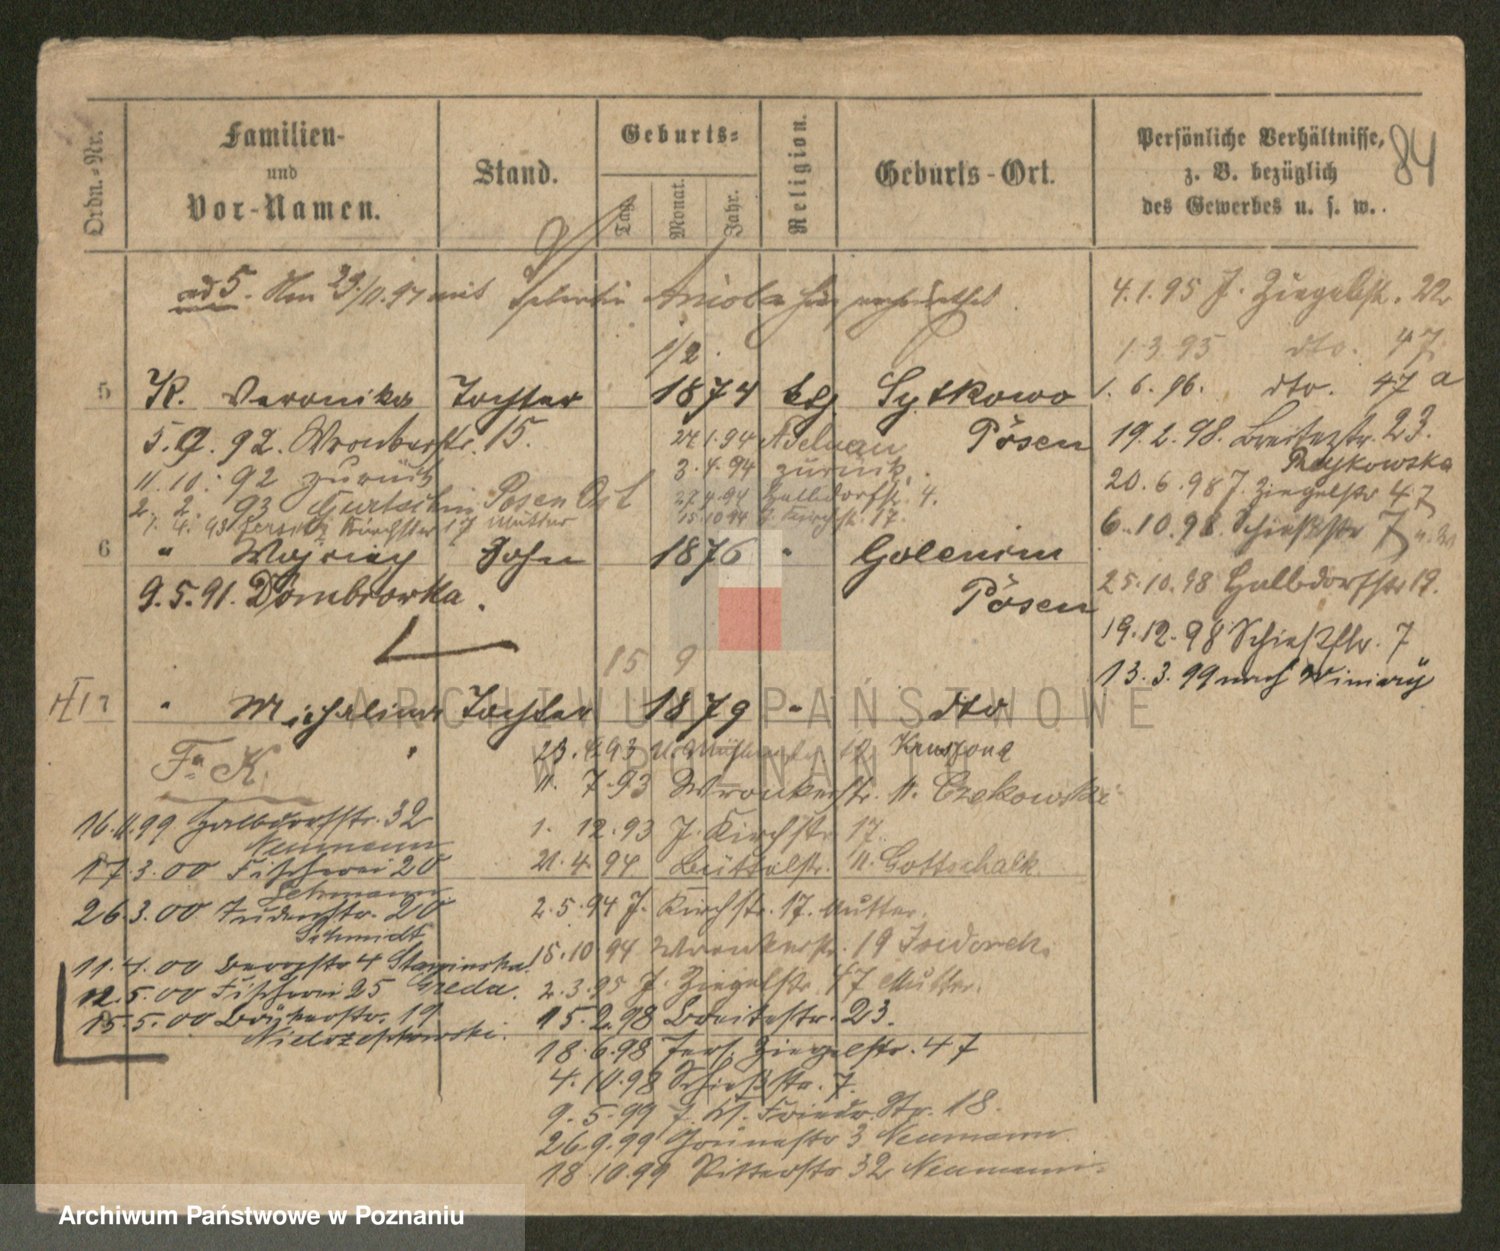 Ordn.-Nr.
Familien-
und
Vor-Namen.
Stand.
Geburts-
Tag.
Monat.
Jahr.
Religion.
Geburts-Ort.
Persönliche Verhältnisse,
z. B. bezüglich
des Gewerbes u. s. w.
84
ad 5. Am 23/11.97 mit
1/2.
5 K. Veronika Tochter 1874 kth. Sytkowo
Posen
5.9.92. Wronkerstr. 15.
11.10.92 zurück
2.2.93 Posen Ost
1.4.93 Jersitz Kirchstr 17 Mutter
24.1.94 Adelnau
3.4.94 zurück.
27.4.94 Halbdorfstr. 4.
15.10.94 J. Kirchstr. 17.
6 " Sohn 1876 " Golencin
Posen
9.5.91. Dombrowka.
15 9
7 " Michalina Tochter 1879 " dto
Fa. K.
16.11.99 Halbdorfstr. 32
Neumann
17.3.00 Fischerei 20
Lehmann
26.3.00 20
Schmidt
11.4.00 Bergstr 4
12.5.00 Fischerei 25 Greda.
15.5.00 Bäckerstr. 19
23. 93
11. 7.93 Wronkerstr. 11. Czekowski
1. 12.93 J. Kirchstr. 17
21.4.94 Büttelstr. 11. Gottschalk
2.5.94 J. Kirchstr. 17. Mutter.
15.10.94 Wronkerstr. 19
2.3.95 J. Ziegelstr. 47 Mutter.
15.2.98 Breitestr. 23.
18.6.98 Jers. Ziegelstr. 47
4.10.98 Schießstr. 7.
9.5.99 J. Kl. Friedr. Str. 18.
26.9.99 3 Neumann
18.10.99 Ritterstr 32 Neumann
4.1.95 J. Ziegelstr. 22
1.3.95 dto. 47
1.6.96. dto. 47 a
19.2.98. Breitestr. 23.
20.6.98 J. Ziegelstr 47
6.10.98. Schießstr 7
25.10.98 Halbdorfstr 19.
19.12.98 Schießstr. 7
13.3.99 nach Winiary
ARCHIWUM PAŃSTWOWE
W POZNANIU
Archiwum Państwowe w Poznaniu